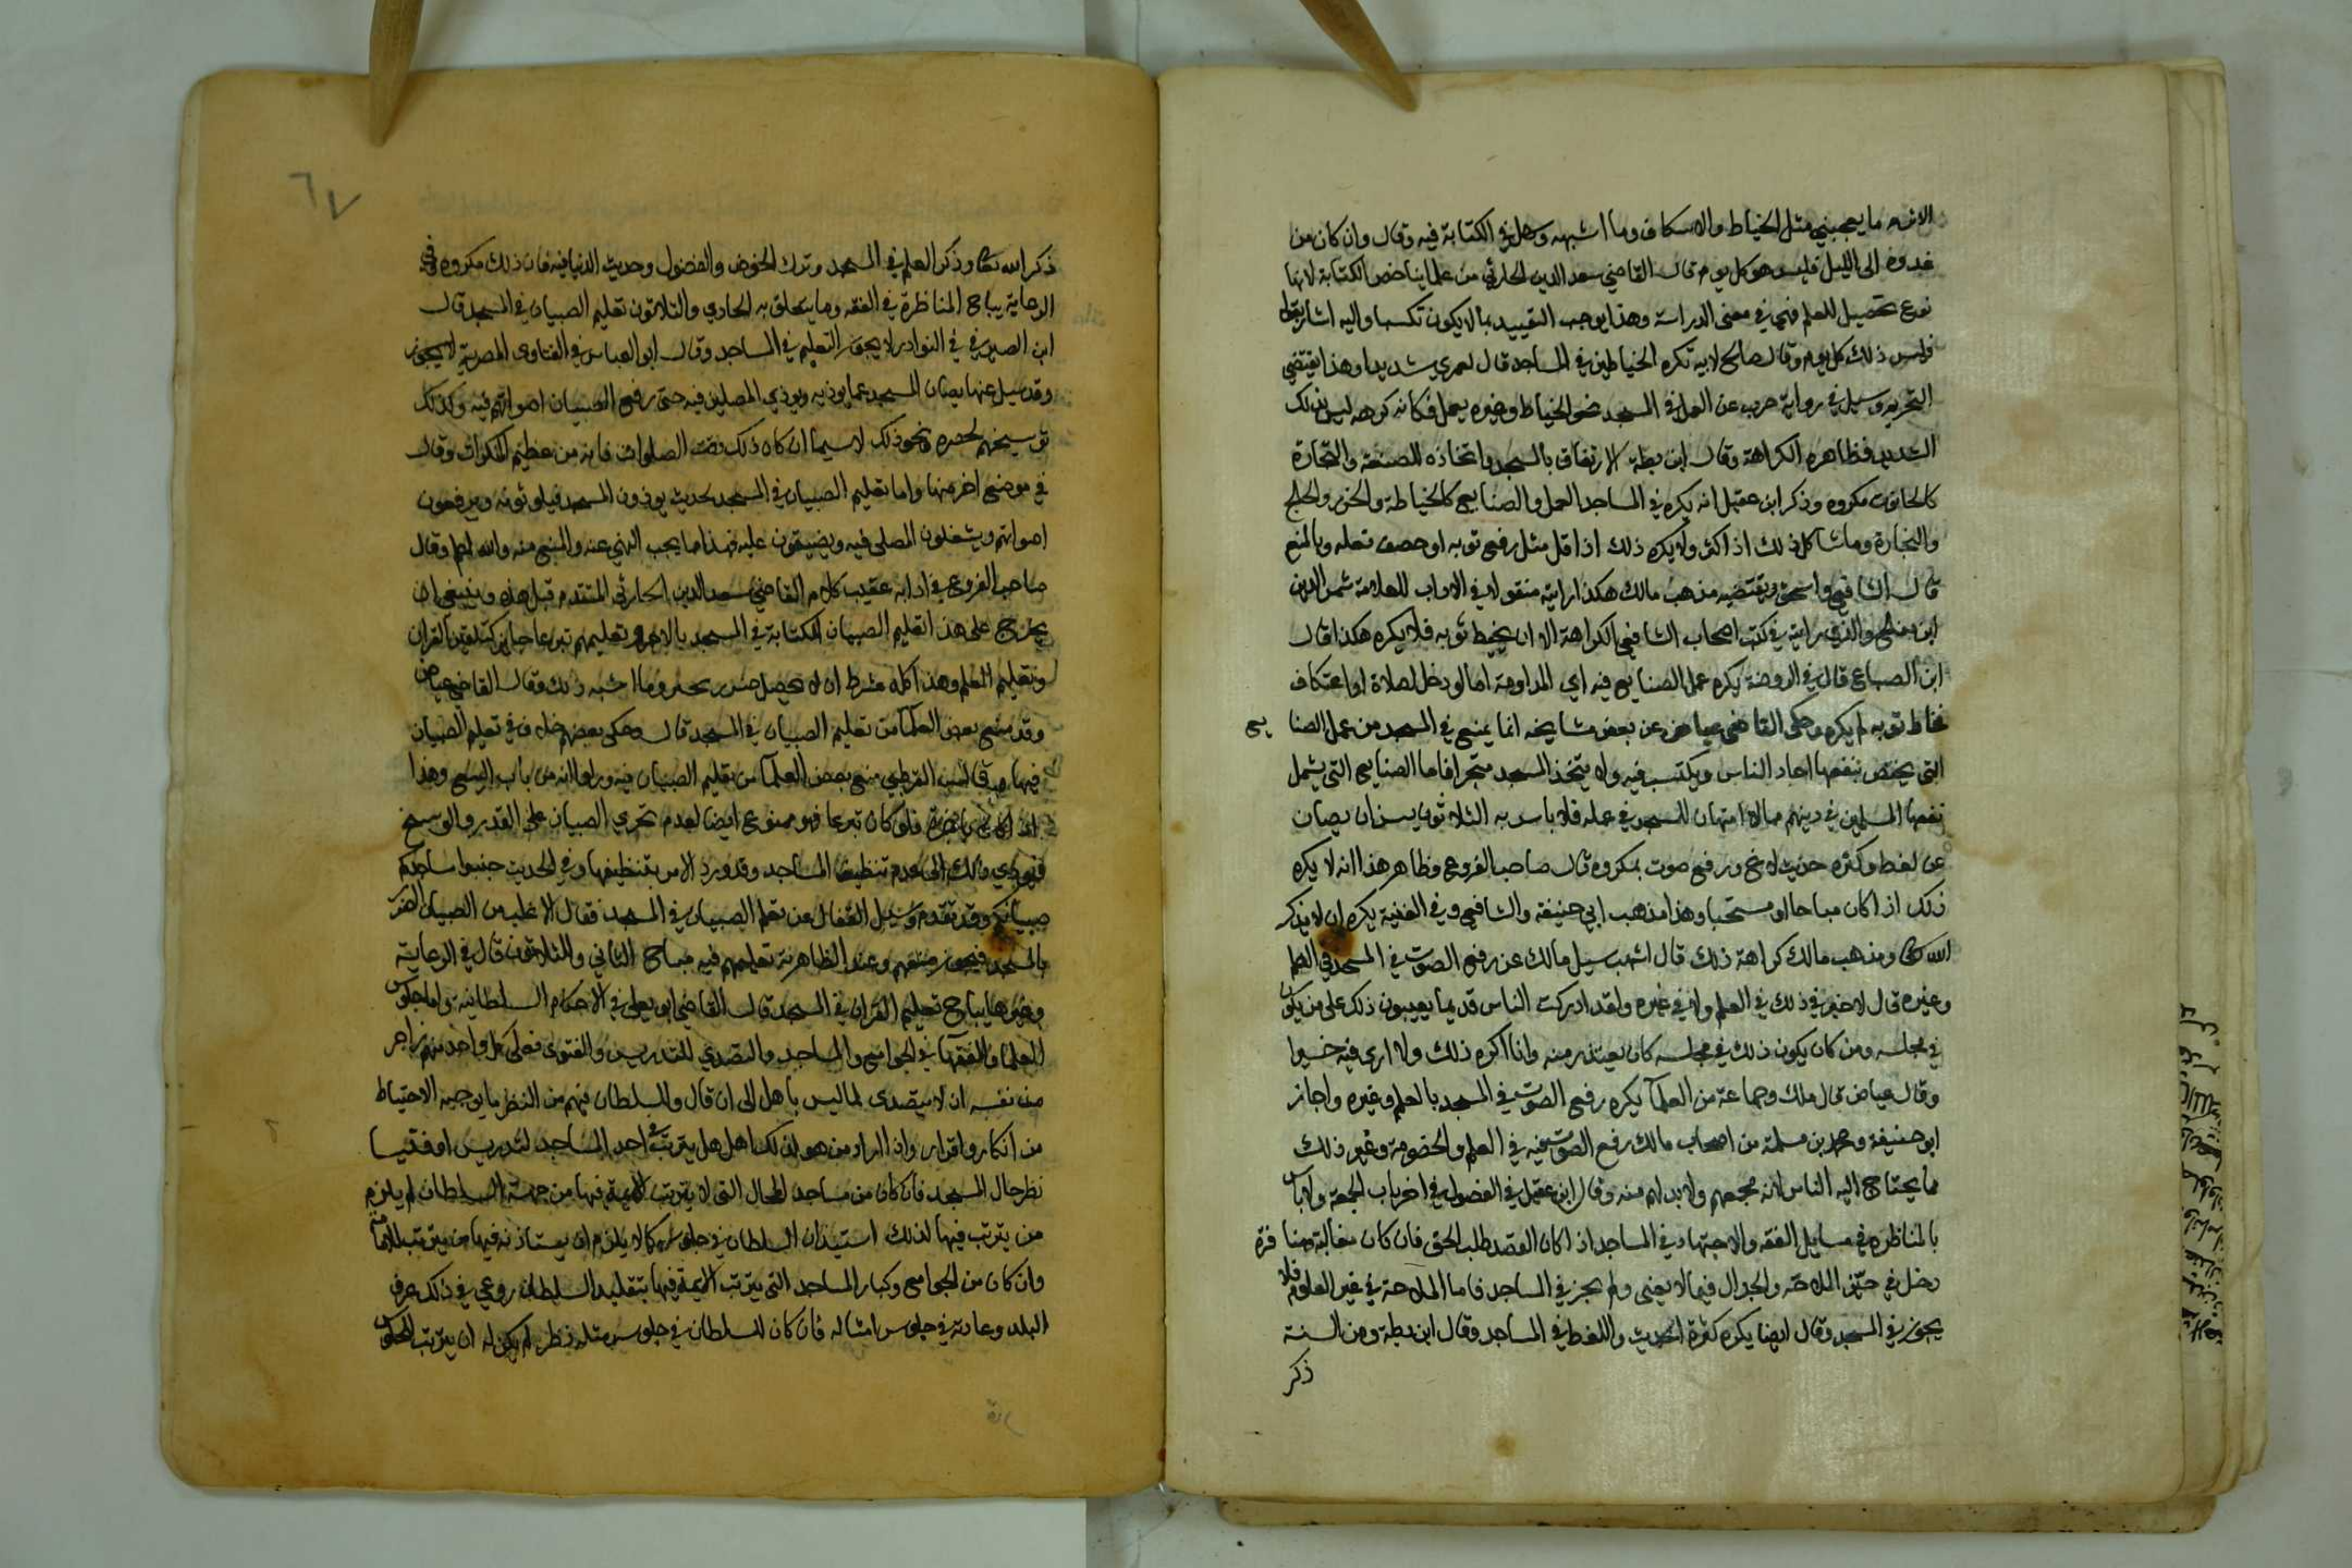 الاثرم ما يعجبني مثل الخياط والاسكاف وما اشبهه وسهل في الكتابة فيه وقال وان كان من
غدوة الى الليل فليس هو كل يوم قال القاضي سعد الدين الحارثي من علماينا خص الكتابة لانها
نوع تحصيل للعلم فهي في معنى الدراسة وهذا يوجب التقييد بما لا يكون تكسبا واليه اشار بقوله
فليس ذلك كل يوم وقال صالح لابيه تكره الخياطين في المساجد قال لعمري شديدا وهذا يقتضي
التحريم وسيل في رواية حرب عن العمل في المسجد نحو الخياط وغيره يعمل فكانه كرهه ليس بذلك
الشديد فظاهره الكراهة وقال ابن بطة الارتفاق بالمسجد واتخاذه للصنعة والتجارة
كالحانوت مكروه وذكر ابن عقيل انه يكره في المساجد العمل والصنايع كالخياطة والخرز والحلج
والتجارة وما شاكل ذلك اذا كثر ولا يكره ذلك اذا قل مثل رقع ثوبه او خصف نعله وبالمنع
قال الشافعي واسحق ويقتضيه مذهب مالك هكذا رايته منقولا في الاداب للعلامة شمس الدين
ابن مفلح والذي رايته في كتب اصحاب الشافعي الكراهة الا ان يخيط ثوبه فلا يكره هكذا قال
ابن الصباغ قال في الروضة يكره عمل الصنايع فيه اي المداومة اما لو دخل لصلاة او اعتكاف
فخاط ثوبه لم يكره وحكى القاضي عياض عن بعض مشايخه انما يمنع في المسجد من عمل الصنا يع
التي يختص بنفعها احاد الناس ويكتسب فيه ولا يتخذ المسجد متجرا فاما الصنايع التي يشمل
نفعها المسلمين في دينهم مما لا امتهان للمسجد في عمله فلا باس به الثلاثون يسن ان يصان
عن لغط وكثرة حديث لاغ ورفع صوت بمكروه قال صاحب الفروع وظاهر هذا انه لا يكره
ذلك اذا كان مباحا او مستحبا وهذا مذهب ابي حنيفة والشافعي وفي الغنية يكره الا بذكر
الله تعالى ومذهب مالك كراهة ذلك قال اشهب سيل مالك عن رفع الصوت في المسجد في العلم
وغيره قال لا خير في ذلك في العلم ولا في غيره ولقد ادركت الناس قديما يعيبون ذلك على من يكون
في مجلسه ومن كان يكون ذلك في مجلسه كان يعتذر منه وانا اكره ذلك ولا ارى فيه خيرا
وقال عياض قال ملك وجماعة من العلمآ يكره رفع الصوت في المسجد بالعلم وغيره واجاز
ابو حنيفة ومحمد بن مسلمة من اصحاب مالك رفع الصوت فيه في العلم والخصومة وغير ذلك
مما يحتاج اليه الناس لانه مجمعهم ولا بد لهم منه وقال ابن عقيل في الفصول في اخر باب الجمعة ولا باس
بالمناظرة في مسايل الفقه والاجتهاد في المساجد اذا كان القصد طلب الحق فان كان مغالبة ومنا فرة
دخل في حيز الملاحة والجدال فيما لا يعني ولم يجز في المساجد فاما الملاحة في غير العلوم فلا
يجوز في المسجد وقال ايضا يكره كثرة الحديث واللغط في المساجد وقال ابن بطة ومن السنة
ذكر
٦٧
ذكر الله تعالى وذكر العلم في المسجد وترك الخوض والفضول وحديث الدنيا فيه فان ذلك مكروه وفي
الرعاية يباح المناظرة في الفقه وما يتعلق به الحادي والثلاثون تعليم الصبيان في المسجد قال
ابن الصيرفي في النوادر لا يجوز التعليم في المساجد وقال ابو العباس في الفتاوى المصرية لا يجوز
وقد سيل عنها يصان المسجد عما يوذيه ويوذي المصلين فيه حتى رفع الصبيان اصواتهم فيه وكذلك
توسيخهم لحصره ونحو ذلك لا سيما ان كان ذلك وقت الصلوات فانه من عظيم المنكرات وقال
في موضع اخر منها واما تعليم الصبيان في المسجد بحيث يوذون المسجد فيلوثونه ويرفعون
اصواتهم ويشغلون المصلي فيه ويضيقون عليه فهذا مما يجب النهي عنه والمنع منه والله اعلم وقال
صاحب الفروع في ادابه عقيب كلام القاضي سعد الدين الحارثي المتقدم قبل هذه وينبغي ان
يخرج على هذا تعليم الصبيان الكتابة في المسجد بالاجرة وتعليمهم تبرعا جايز كتلقين القران
وتعليم العلم وهذا كله بشرط ان لا يحصل ضرر بحبر وما اشبه ذلك وقال القاضي عياض
وقد منع بعض العلمآ من تعليم الصبيان في المسجد قال وحكى بعضهم خلافا في تعليم الصبيان
فيها قال القرطبي منع بعض العلمآ من تعليم الصبيان فيه وراوا انه من باب البيع وهذا
اذا كان باجرة فلو كان تبرعا فهو ممنوع ايضا لعدم تحري الصبيان على القذر والوسخ
فيودي ذلك الى عدم تنظيف المساجد وقد ورد الامر بتنظيفها وفي الحديث جنبوا مساجدكم
صبيانكم وقد تقدم وسيل القفال عن تعلم الصبيان في المسجد فقال الاغلب من الصبيان الضرر
بالمسجد فيجوز منعهم وعند الظاهرية تعليمهم فيه مباح الثاني والثلاثون قال في الرعاية
وغيرها يباح تعليم القران في المسجد قال القاضي ابو يعلى في الاحكام السلطانية واما جلوس
العلما والفقهآ في الجوامع والمساجد والتصدي للتدريس والفتوى فعلى كل واحد منهم زاجر
من نفسه ان لا يتصدى لما ليس باهل الى ان قال وللسلطان فيهم من النظر ما يوجبه الاحتياط
من انكار واقرار واذا اراد من هو لذلك اهل هل يترتب في احد المساجد لتدريس او فتيا
نظر حال المسجد فان كان من مساجد المحال التي لا يترتب الايمة فيها من جهة السلطان لم يلزم
من يترتب فيها لذلك استيذان السلطان في جلوسه كما لا يلزم ان يستاذنه فيها من يترتب للامامة
وان كان من الجوامع وكبار المساجد التي يترتب الايمة فيها بتقليد السلطان روعي في ذلك عرف
البلد وعادته في جلوس امثاله فان كان للسلطان في جلوس مثله نظر لم يكن له ان يترتب للجلوس